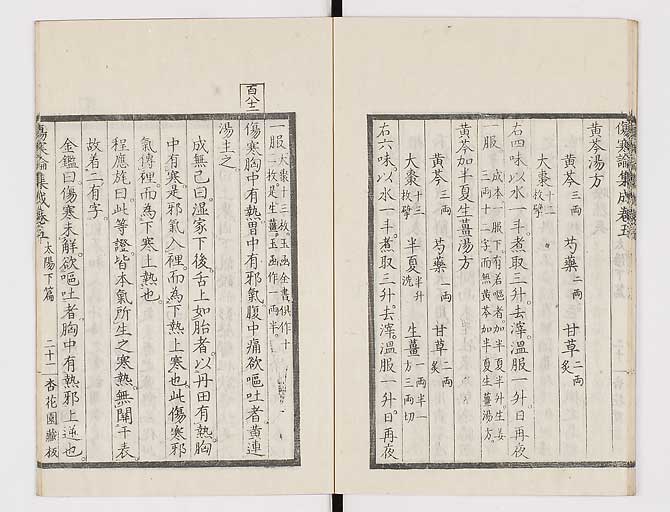 傷寒論集成卷五
黃芩湯方
黃芩三兩 芍藥二兩 甘草二兩炙
大棗十二枚擘
右四味以水一斗煮取三升去滓溫服一升日再夜
一服成本一服下有若嘔者加半夏半升生姜
三兩十二字而無黃芩加半夏生薑湯方
黃芩加半夏生薑湯方
黃芩三兩 芍藥二兩 甘草二兩炙
大棗十二枚擘 半夏半升洗 生薑一兩半一方三兩切
右六味以水一斗煮取三升去滓溫服一升日再夜
一服大棗十三枚玉函全書俱作十
二枚是生薑玉函作一兩半
百八十二
傷寒胸中有熱胃中有邪氣腹中痛欲嘔吐者黃連
湯主之
成無己曰濕家下後舌上如胎者以丹田有熱胸
中有寒是邪氣入裡而為下熱上寒也此傷寒邪
氣傳裡而為下寒上熱也
程應旄曰此等證皆本氣所生之寒熱無關于表
故着二有字
金鑑曰傷寒未解欲嘔吐者胸中有熱邪上逆也
傷寒論集成卷五 太陽下篇 二十一 杏花園藏板